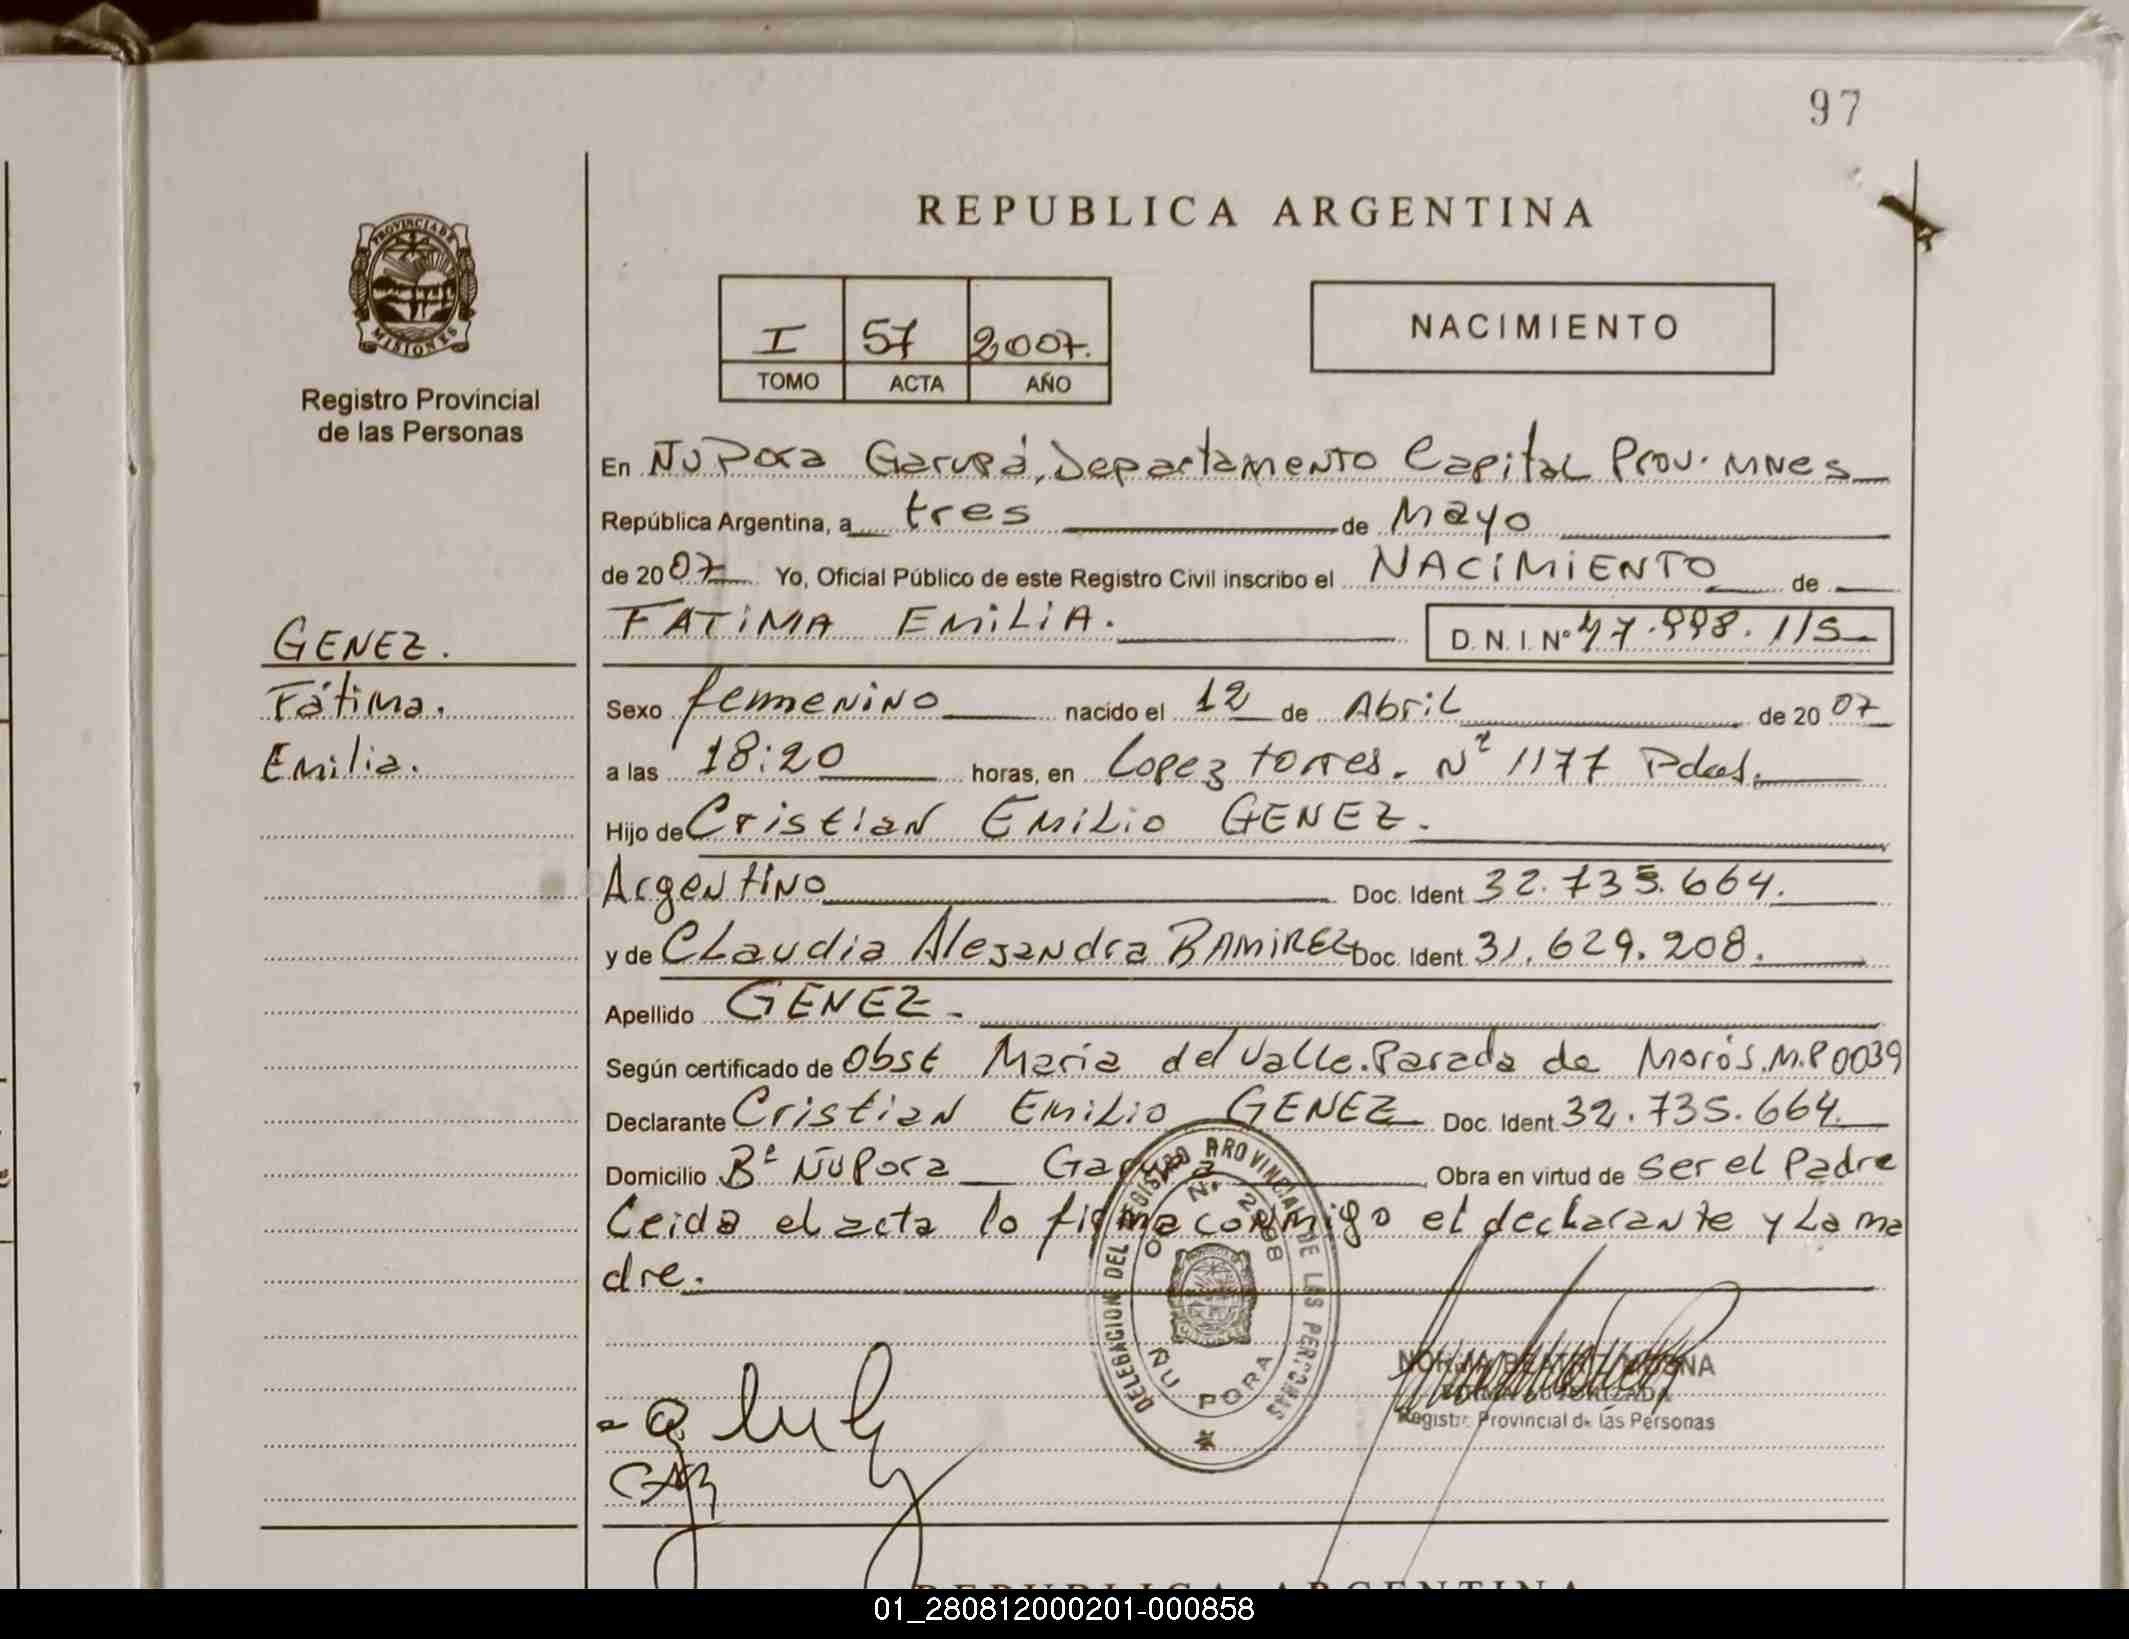 97
PROVINCIA DE
MISIONES
Registro Provincial
de las Personas
GENEZ.
Fátima.
Emilia.
REPUBLICA ARGENTINA
I 57 2007.
TOMO ACTA AÑO
NACIMIENTO
En Ñu Pora Garupá, Departamento Capital Prov. Mnes
República Argentina, a tres de Mayo
de 2007 Yo, Oficial Público de este Registro Civil inscribo el NACIMIENTO de
FATIMA EMILIA. D. N. I. Nº 47.998.115
Sexo femenino nacido el 12 de Abril de 2007
a las 18:20 horas, en Lopez torres. Nº 1177 Pdas.
Hijo de Cristian Emilio GENEZ.
Argentino Doc. Ident. 32.735.664.
y de Claudia Alejandra RAMIREZ Doc. Ident. 31.629.208.
Apellido GENEZ.
Según certificado de Obst Maria del Valle. Parada de Morós. M.P 0039
Declarante Cristian Emilio GENEZ Doc. Ident. 32.735.664.
Domicilio Bº Ñu Pora Garupa, Obra en virtud de ser el Padre
Leida el acta lo firma conmigo el declarante y La ma
dre.
DELEGACION DEL REGISTRO PROVINCIAL DE LAS PERSONAS
ÑU PORA
FIRMA AUTORIZADA
Registro Provincial de las Personas
REPUBLICA ARGENTINA
01_280812000201-000858